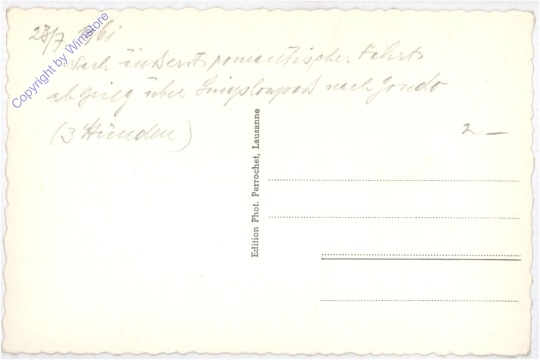 28/7 61
Nach äußerst romantischer Fahrt
ab Brieg über Simplonpaß nach Gondo
(3 Stunden)
2 —
Edition Phot. Perrochet, Lausanne
Copyright by Winistore